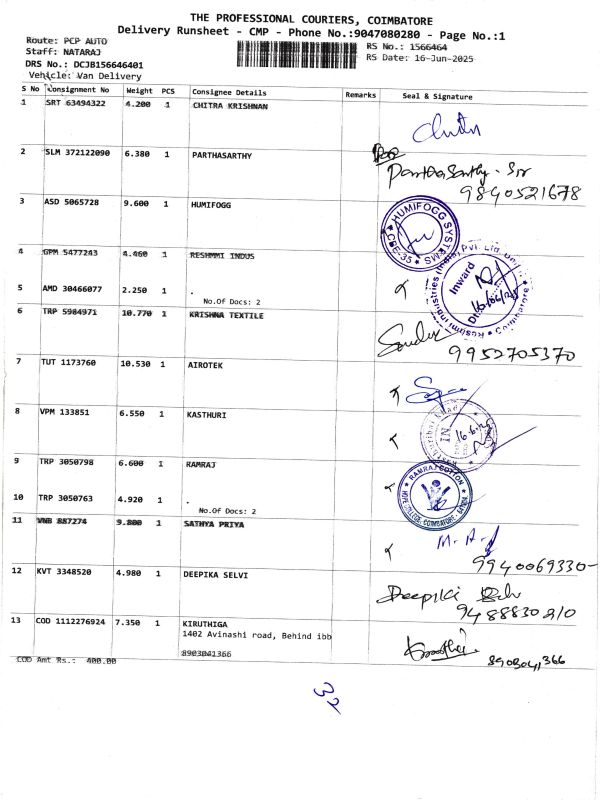 THE PROFESSIONAL COURIERS, COIMBATORE
Delivery Runsheet - CMP - Phone No.:9047080280 - Page No.:1
Route: PCP AUTO
RS No.: 1566464
Staff: NATARAJ
RS Date: 16-Jun-2025
DRS No.: DCJB156646401
Vehicle: Van Delivery
S No Consignment No Weight PCS Consignee Details Remarks Seal & Signature
1 SRT 63494322 4.200 1 CHITRA KRISHNAN
2 SLM 372122090 6.380 1 PARTHASARTHY
Parthasarthy - Sir
9840521678
3 ASD 5065728 9.600 1 HUMIFOGG
HUMIFOGG SYSTEMS
CBE-35
4 GPM 5477243 4.460 1 RESHMMI INDUS
Inward
5 AMD 30466077 2.250 1 .
No.Of Docs: 2
6 TRP 5984971 10.770 1 KRISHNA TEXTILE
9952705370
7 TUT 1173760 10.530 1 AIROTEK
8 VPM 133851 6.550 1 KASTHURI
IN
16.6.25
9 TRP 3050798 6.600 1 RAMRAJ
RAMRAJ COTTON
HOPE COLLEGE, COIMBATORE
10 TRP 3050763 4.920 1 .
No.Of Docs: 2
11 VNB 887274 9.800 1 SATHYA PRIYA
9940069330
12 KVT 3348520 4.980 1 DEEPIKA SELVI
Deepika
9488830210
13 COD 1112276924 7.350 1 KIRUTHIGA
1402 Avinashi road, Behind ibb
8903041366
8903041366
COD Amt Rs.: 400.00
32